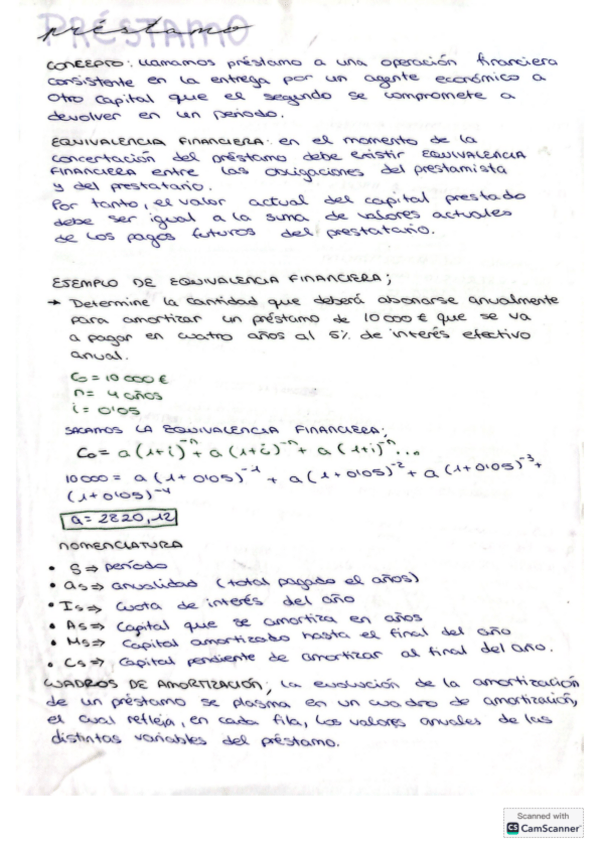 PRÉSTAMO
préstamo
CONCEPTO: llamamos préstamo a una operación financiera
consistente en la entrega por un agente económico a
otro capital que el segundo se compromete a
devolver en un periodo.
EQUIVALENCIA FINANCIERA: en el momento de la
concertación del préstamo debe existir EQUIVALENCIA
FINANCIERA entre las obligaciones del prestamista
y del prestatario.
Por tanto, el valor actual del capital prestado
debe ser igual a la suma de valores actuales
de los pagos futuros del prestatario.
EJEMPLO DE EQUIVALENCIA FINANCIERA;
→ Determine la cantidad que deberá abonarse anualmente
para amortizar un préstamo de 10 000 € que se va
a pagar en cuatro años al 5% de interés efectivo
anual.
C₀ = 10 000 €
n = 4 años
i = 0'05
SACAMOS LA EQUIVALENCIA FINANCIERA;
C₀ = a (1+i)⁻ⁿ + a (1+i)⁻ⁿ + a (1+i)⁻ⁿ...
10000 = a (1+0'05)⁻¹ + a (1+0'05)⁻² + a (1+0'05)⁻³ +
(1+0'05)⁻⁴
a = 2820,12
NOMENCLATURA
• S ⇒ período
• as ⇒ anualidad (total pagado el años)
• Is ⇒ Cuota de interés del año
• As ⇒ Capital que se amortiza en años
• Ms ⇒ Capital amortizado hasta el final del año
• Cs ⇒ Capital pendiente de amortizar al final del año.
CUADROS DE AMORTIZACIÓN; La evolución de la amortización
de un préstamo se plasma en un cuadro de amortización,
el cual refleja, en cada fila, los valores anuales de las
distintas variables del préstamo.
Scanned with
CS CamScanner